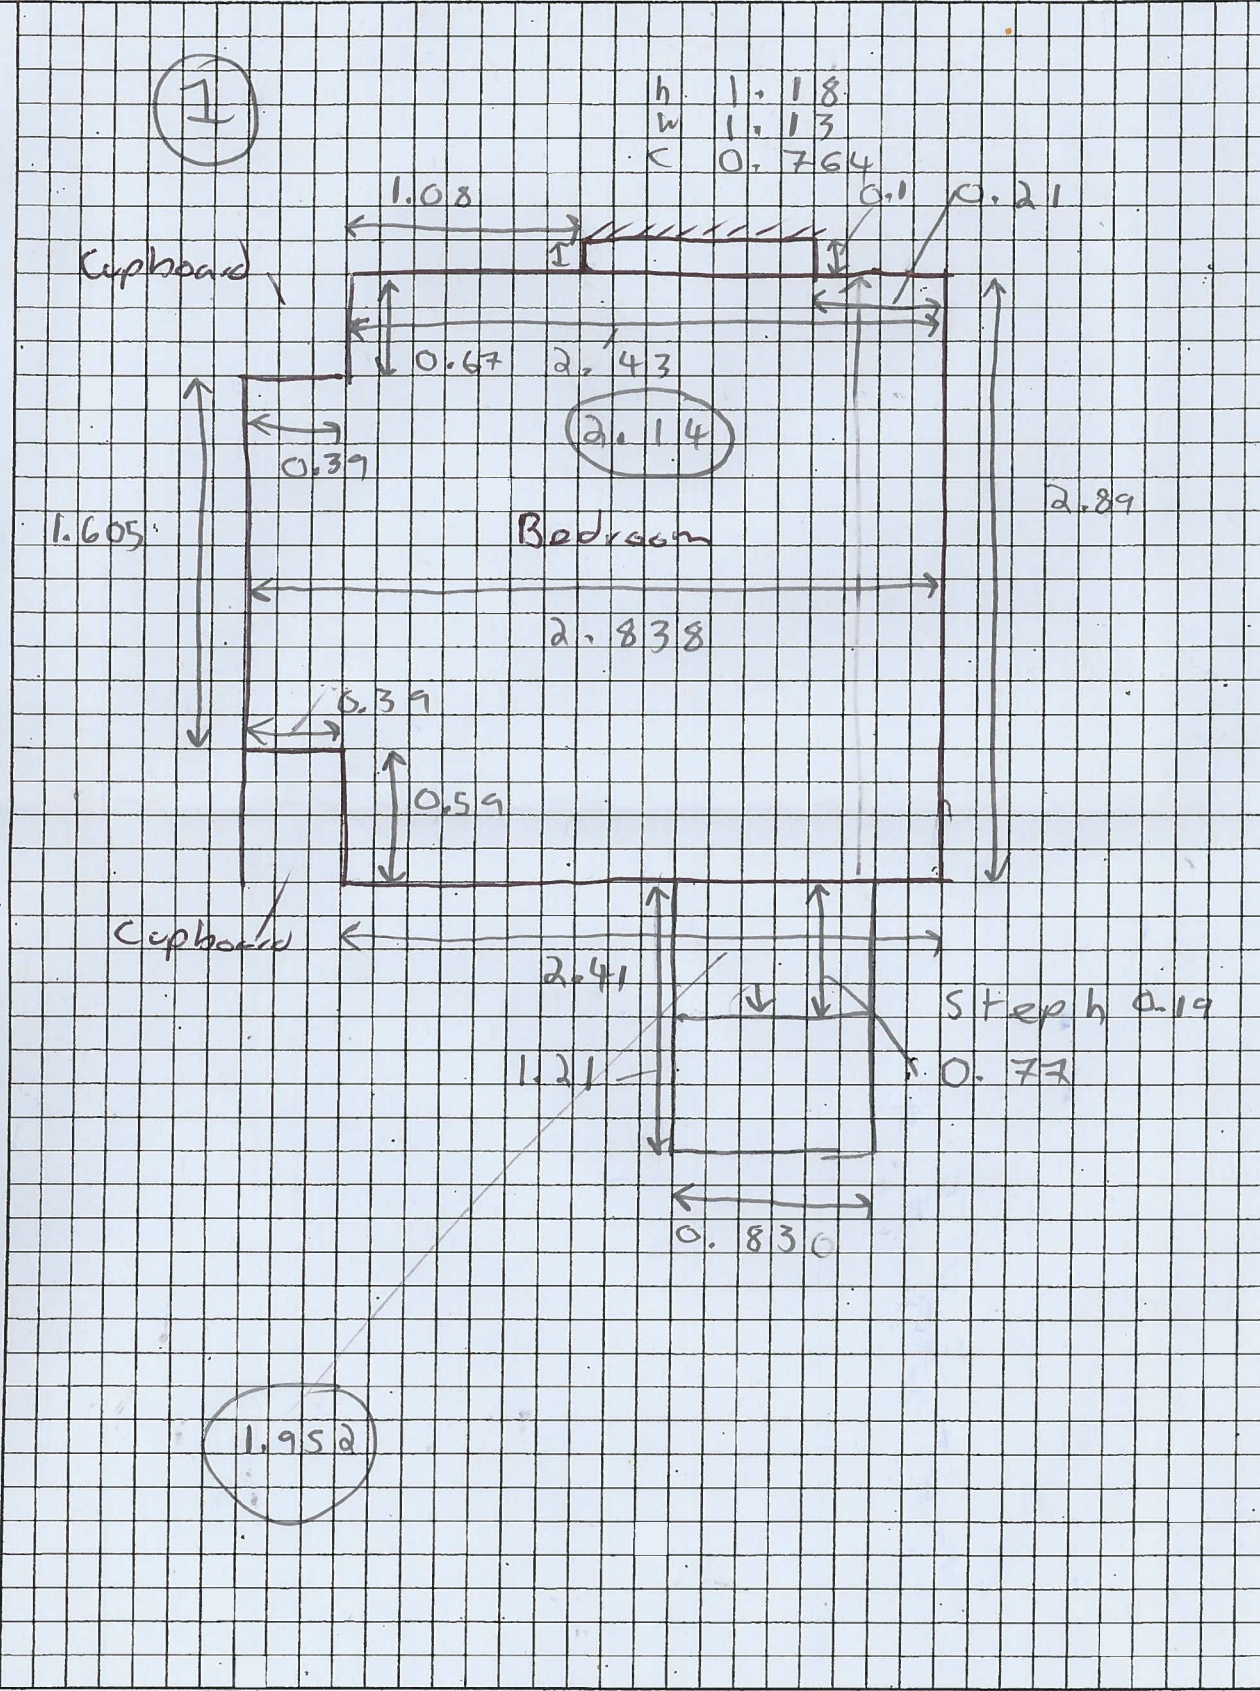 1
h 1.18
w 1.13
c 0.764
1.08
0.1
0.21
Cupboard
0.67
2.43
2.14
0.39
2.89
1.605
Bedroom
2.838
0.39
0.59
Cupboard
2.41
Step h 0.19
1.21
0.77
0.830
1.952